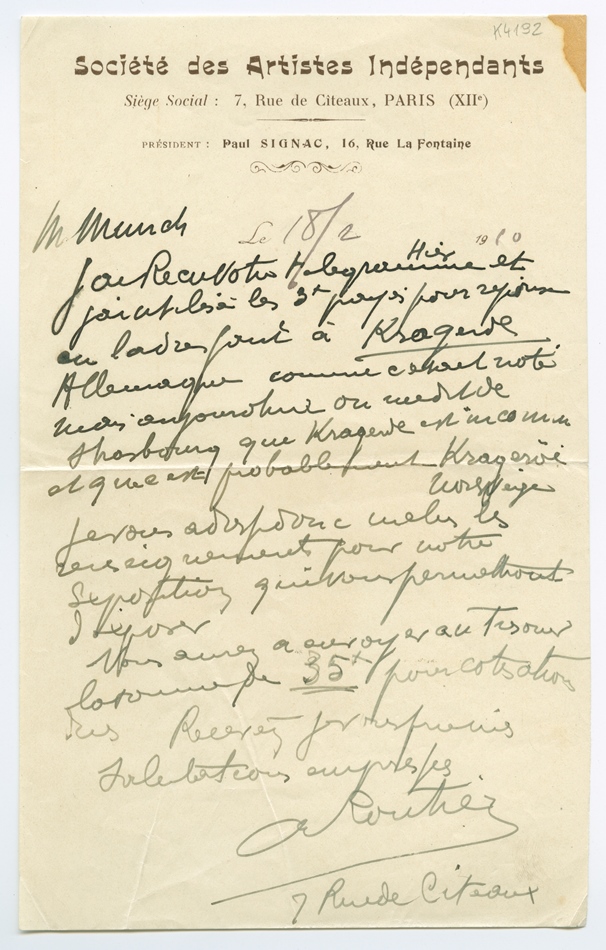 K4192
Société des Artistes Indépendants
Siège Social : 7, Rue de Citeaux, PARIS (XIIe)
PRÉSIDENT : Paul SIGNAC, 16, Rue La Fontaine
M Munch
Le 18/2 1910
J'ai Recu Votre telegramme Hier et
j'ai utilisé les 3f payés pour reponse
en l'adressant à Kragerde
Allemagne comme cetait noté
mais aujourdhui on me dit de
Strasbourg que Kragerde est inconnu
et que c'est probablement Krageröe
Norvege
Je vous adresse donc les
renseignements pour notre
Exposition qui vous permettront
d'exposer
Vous aurez a envoyer au Tresorier
la somme de 35f pour cotisation
Recevez je vous prie mes
Salutations empressées
Routier
7 Rue de Citeaux